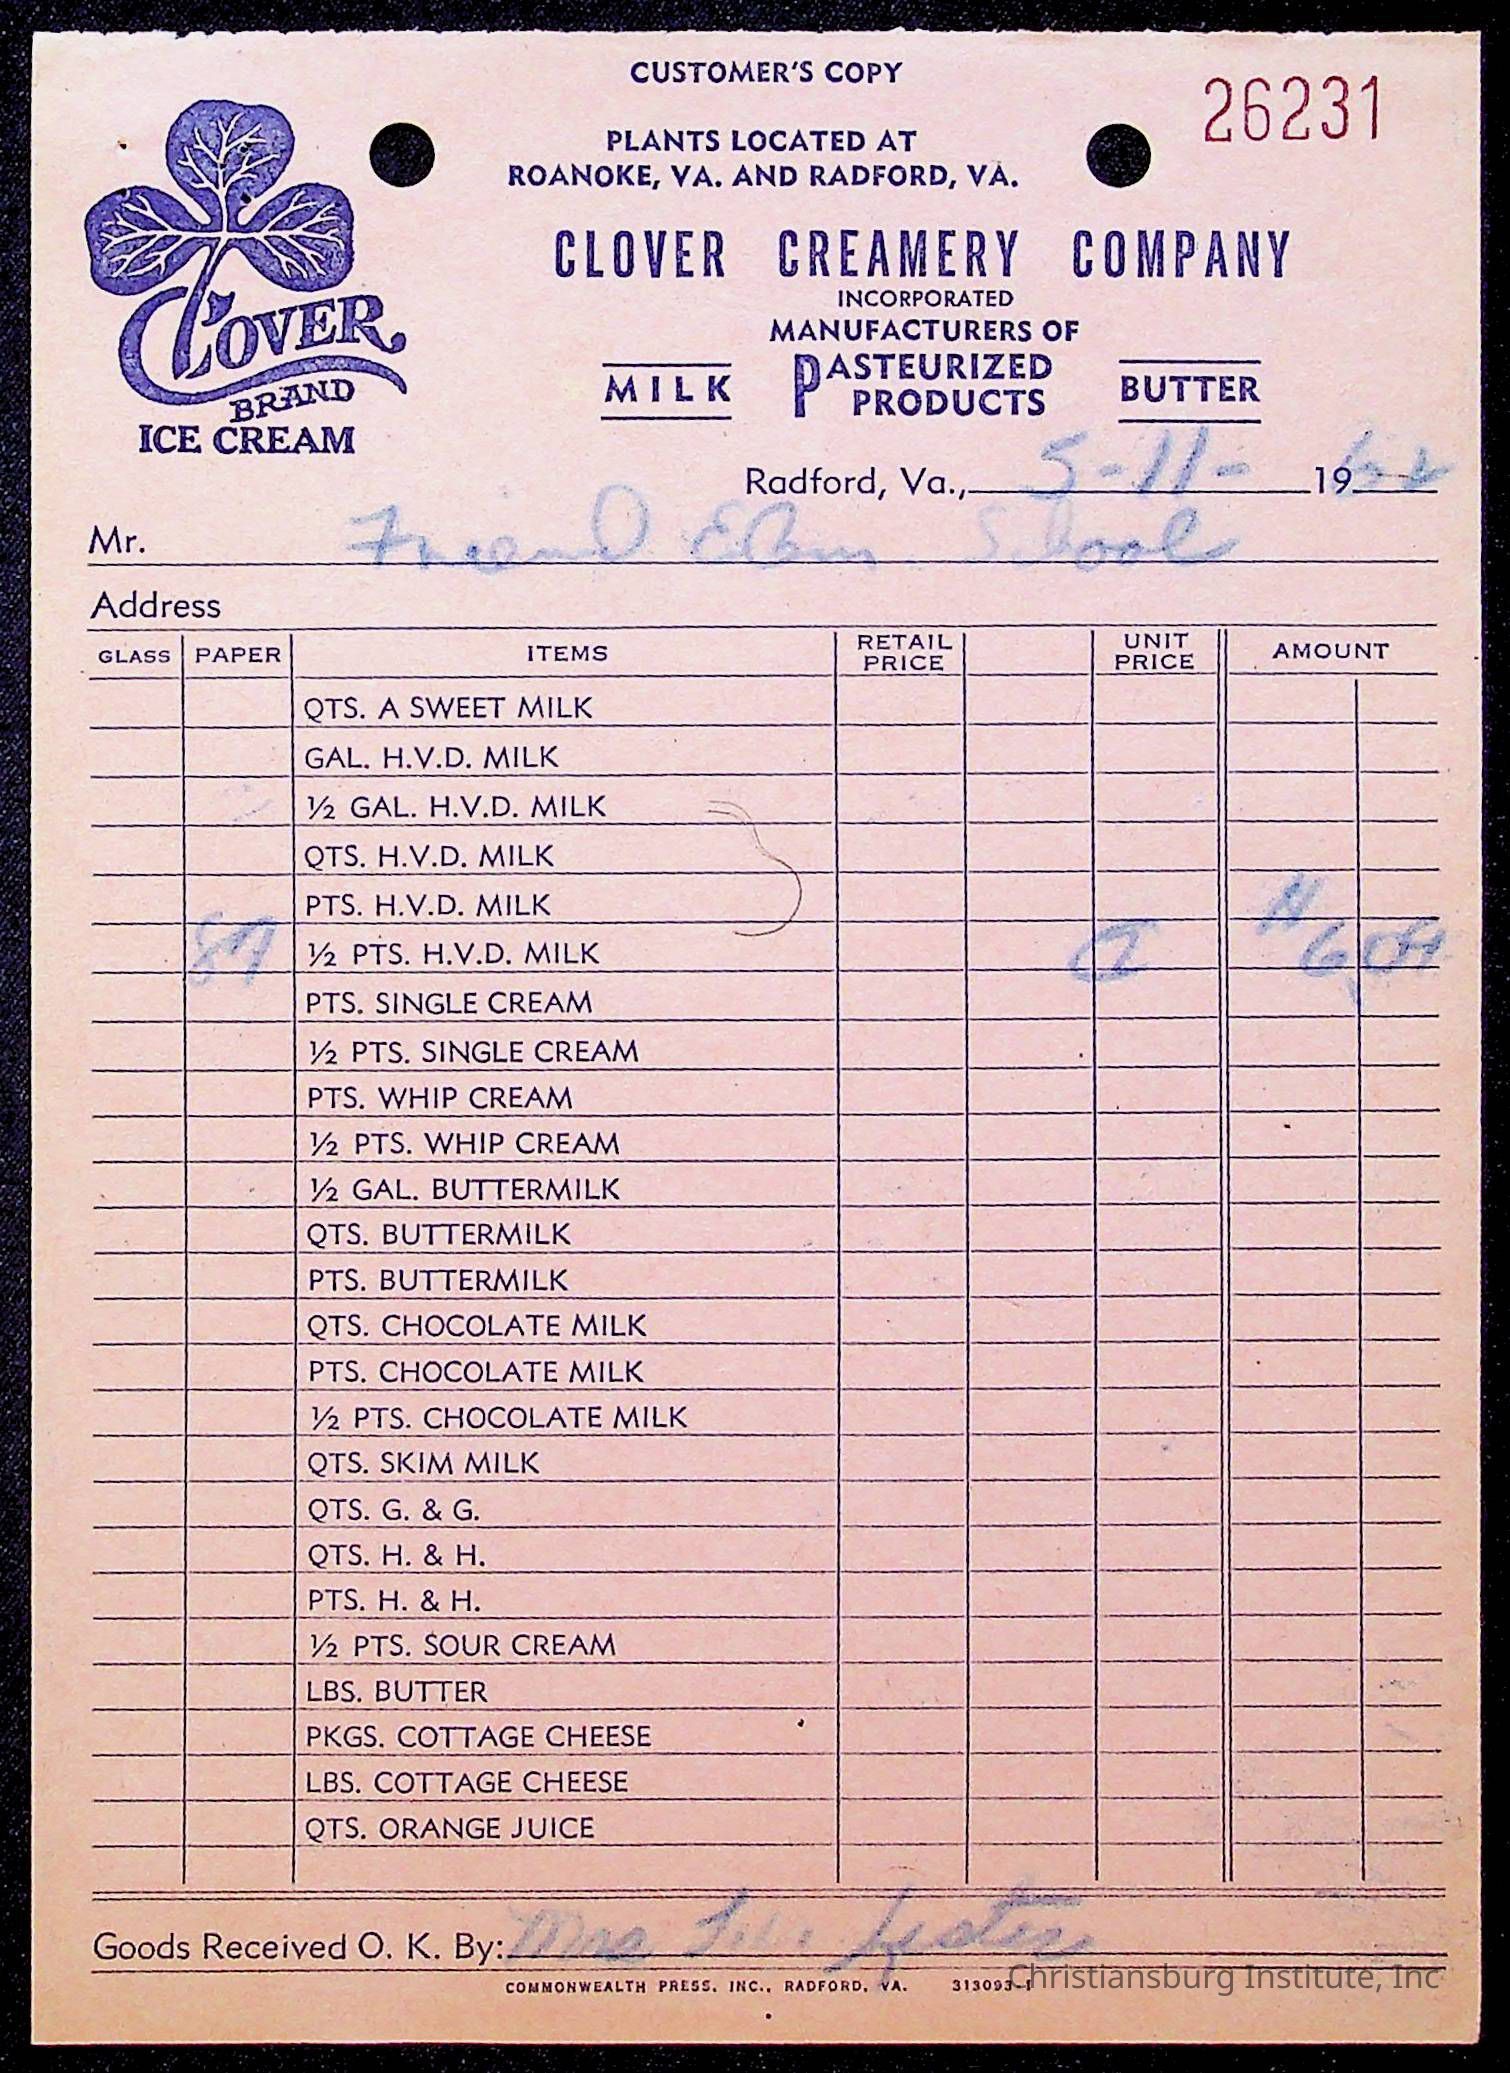 CUSTOMER'S COPY
26231
PLANTS LOCATED AT
ROANOKE, VA. AND RADFORD, VA.
CLOVER CREAMERY COMPANY
INCORPORATED
MANUFACTURERS OF
MILK PASTEURIZED PRODUCTS BUTTER
CLOVER
BRAND
ICE CREAM
Radford, Va., 5-11- 1962
Mr. Friend Elem. School
Address
GLASS PAPER ITEMS RETAIL PRICE UNIT PRICE AMOUNT
QTS. A SWEET MILK
GAL. H.V.D. MILK
½ GAL. H.V.D. MILK
QTS. H.V.D. MILK
PTS. H.V.D. MILK
½ PTS. H.V.D. MILK
PTS. SINGLE CREAM
½ PTS. SINGLE CREAM
PTS. WHIP CREAM
½ PTS. WHIP CREAM
½ GAL. BUTTERMILK
QTS. BUTTERMILK
PTS. BUTTERMILK
QTS. CHOCOLATE MILK
PTS. CHOCOLATE MILK
½ PTS. CHOCOLATE MILK
QTS. SKIM MILK
QTS. G. & G.
QTS. H. & H.
PTS. H. & H.
½ PTS. SOUR CREAM
LBS. BUTTER
PKGS. COTTAGE CHEESE
LBS. COTTAGE CHEESE
QTS. ORANGE JUICE
Goods Received O. K. By: Mrs
COMMONWEALTH PRESS, INC., RADFORD, VA. 313093-1
Christiansburg Institute, Inc